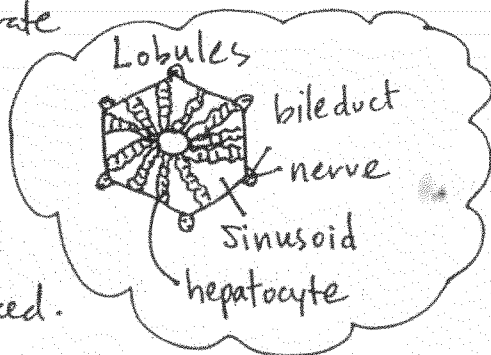 rate
Lobules
bileduct
nerve
Sinusoid
hepatocyte
ced.